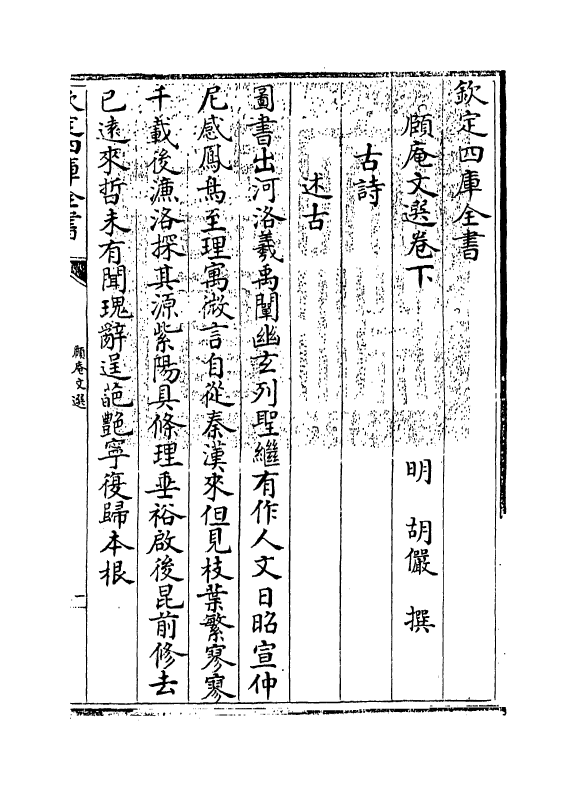 欽定四庫全書
頤庵文選卷下
明 胡儼 撰
古詩
述古
圖書出河洛羲禹闡幽玄列聖繼有作人文日昭宣仲
尼感鳳鳥至理寓微言自從秦漢來但見枝葉繁寥寥
千載後濂洛探其源紫陽具條理垂裕啟後昆前修去
已遠來哲未有聞瑰辭逞葩艷寧復歸本根
欽定四庫全書
頤庵文選
一